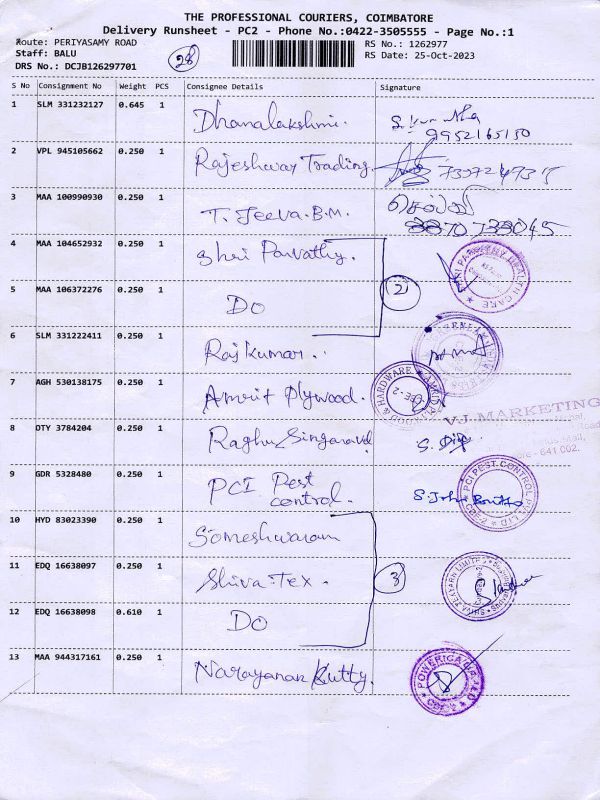 THE PROFESSIONAL COURIERS, COIMBATORE
Delivery Runsheet - PC2 - Phone No.:0422-3505555 - Page No.:1
Route: PERIYASAMY ROAD RS No.: 1262977
Staff: BALU RS Date: 25-Oct-2023
DRS No.: DCJB126297701
28
S No Consignment No Weight PCS Consignee Details Signature
1 SLM 331232127 0.645 1 Dhanalakshmi.
9952165150
2 VPL 945105662 0.250 1 Rajeshwar Trading.
3 MAA 100990930 0.250 1 T. Jeeva.B.M.
4 MAA 104652932 0.250 1 Shri Parvathy.
5 MAA 106372276 0.250 1 DO 2
6 SLM 331222411 0.250 1 Rajkumar.
7 AGH 530138175 0.250 1 Amrit Plywood. & HARDWARE CBE-2
VJ. MARKETING
8 DTY 3784204 0.250 1 Raghu
- 641 002.
9 GDR 5328480 0.250 1 PCI Pest control. S. John PCI PEST CONTROL PVT LTD CBE-2
10 HYD 83023390 0.250 1 Someshwaram
11 EDQ 16638097 0.250 1 Shiva Tex. 3
12 EDQ 16638098 0.610 1 DO
13 MAA 944317161 0.250 1 Narayanan Kutty.
CBE-2